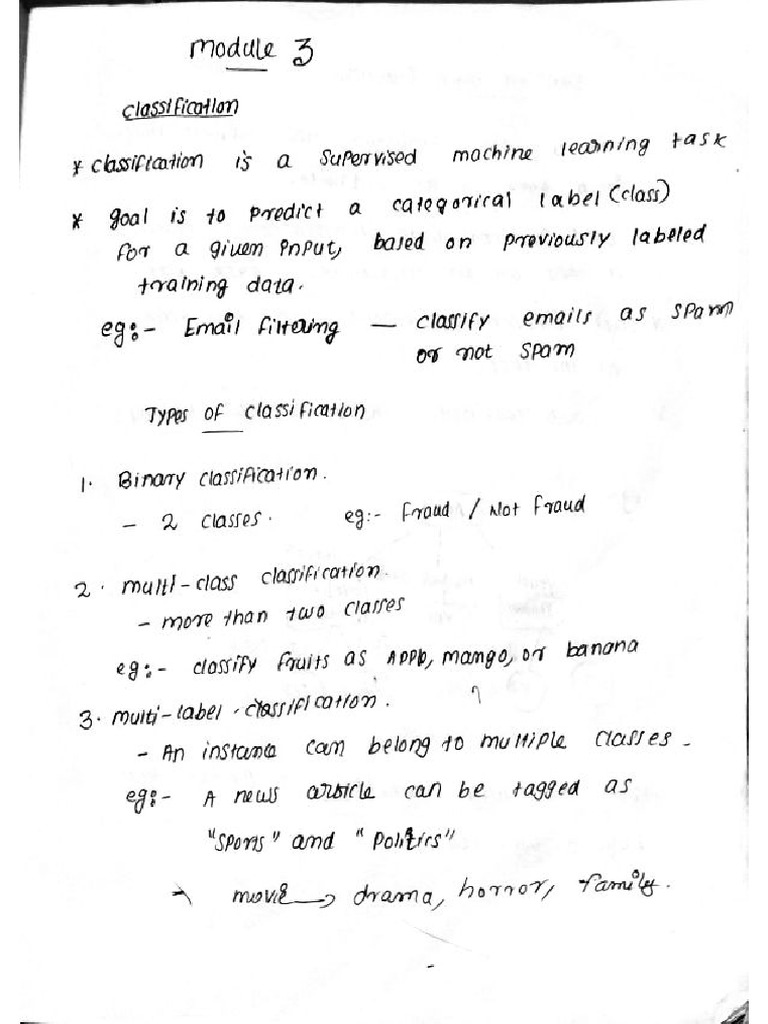 Module 3
Classification
* Classification is a supervised machine learning task
* goal is to predict a categorical label (class)
for a given input, based on previously labeled
training data.
eg:- Email filtering — classify emails as spam
or not spam
Types of classification
1. Binary classification.
- 2 classes. eg:- fraud / Not fraud
2. multi-class classification.
- more than two classes
eg:- classify fruits as Apple, mango, or banana
3. multi-label classification.
- An instance can belong to multiple classes.
eg:- A news article can be tagged as
"sports" and "politics"
movie → drama, horror, family.